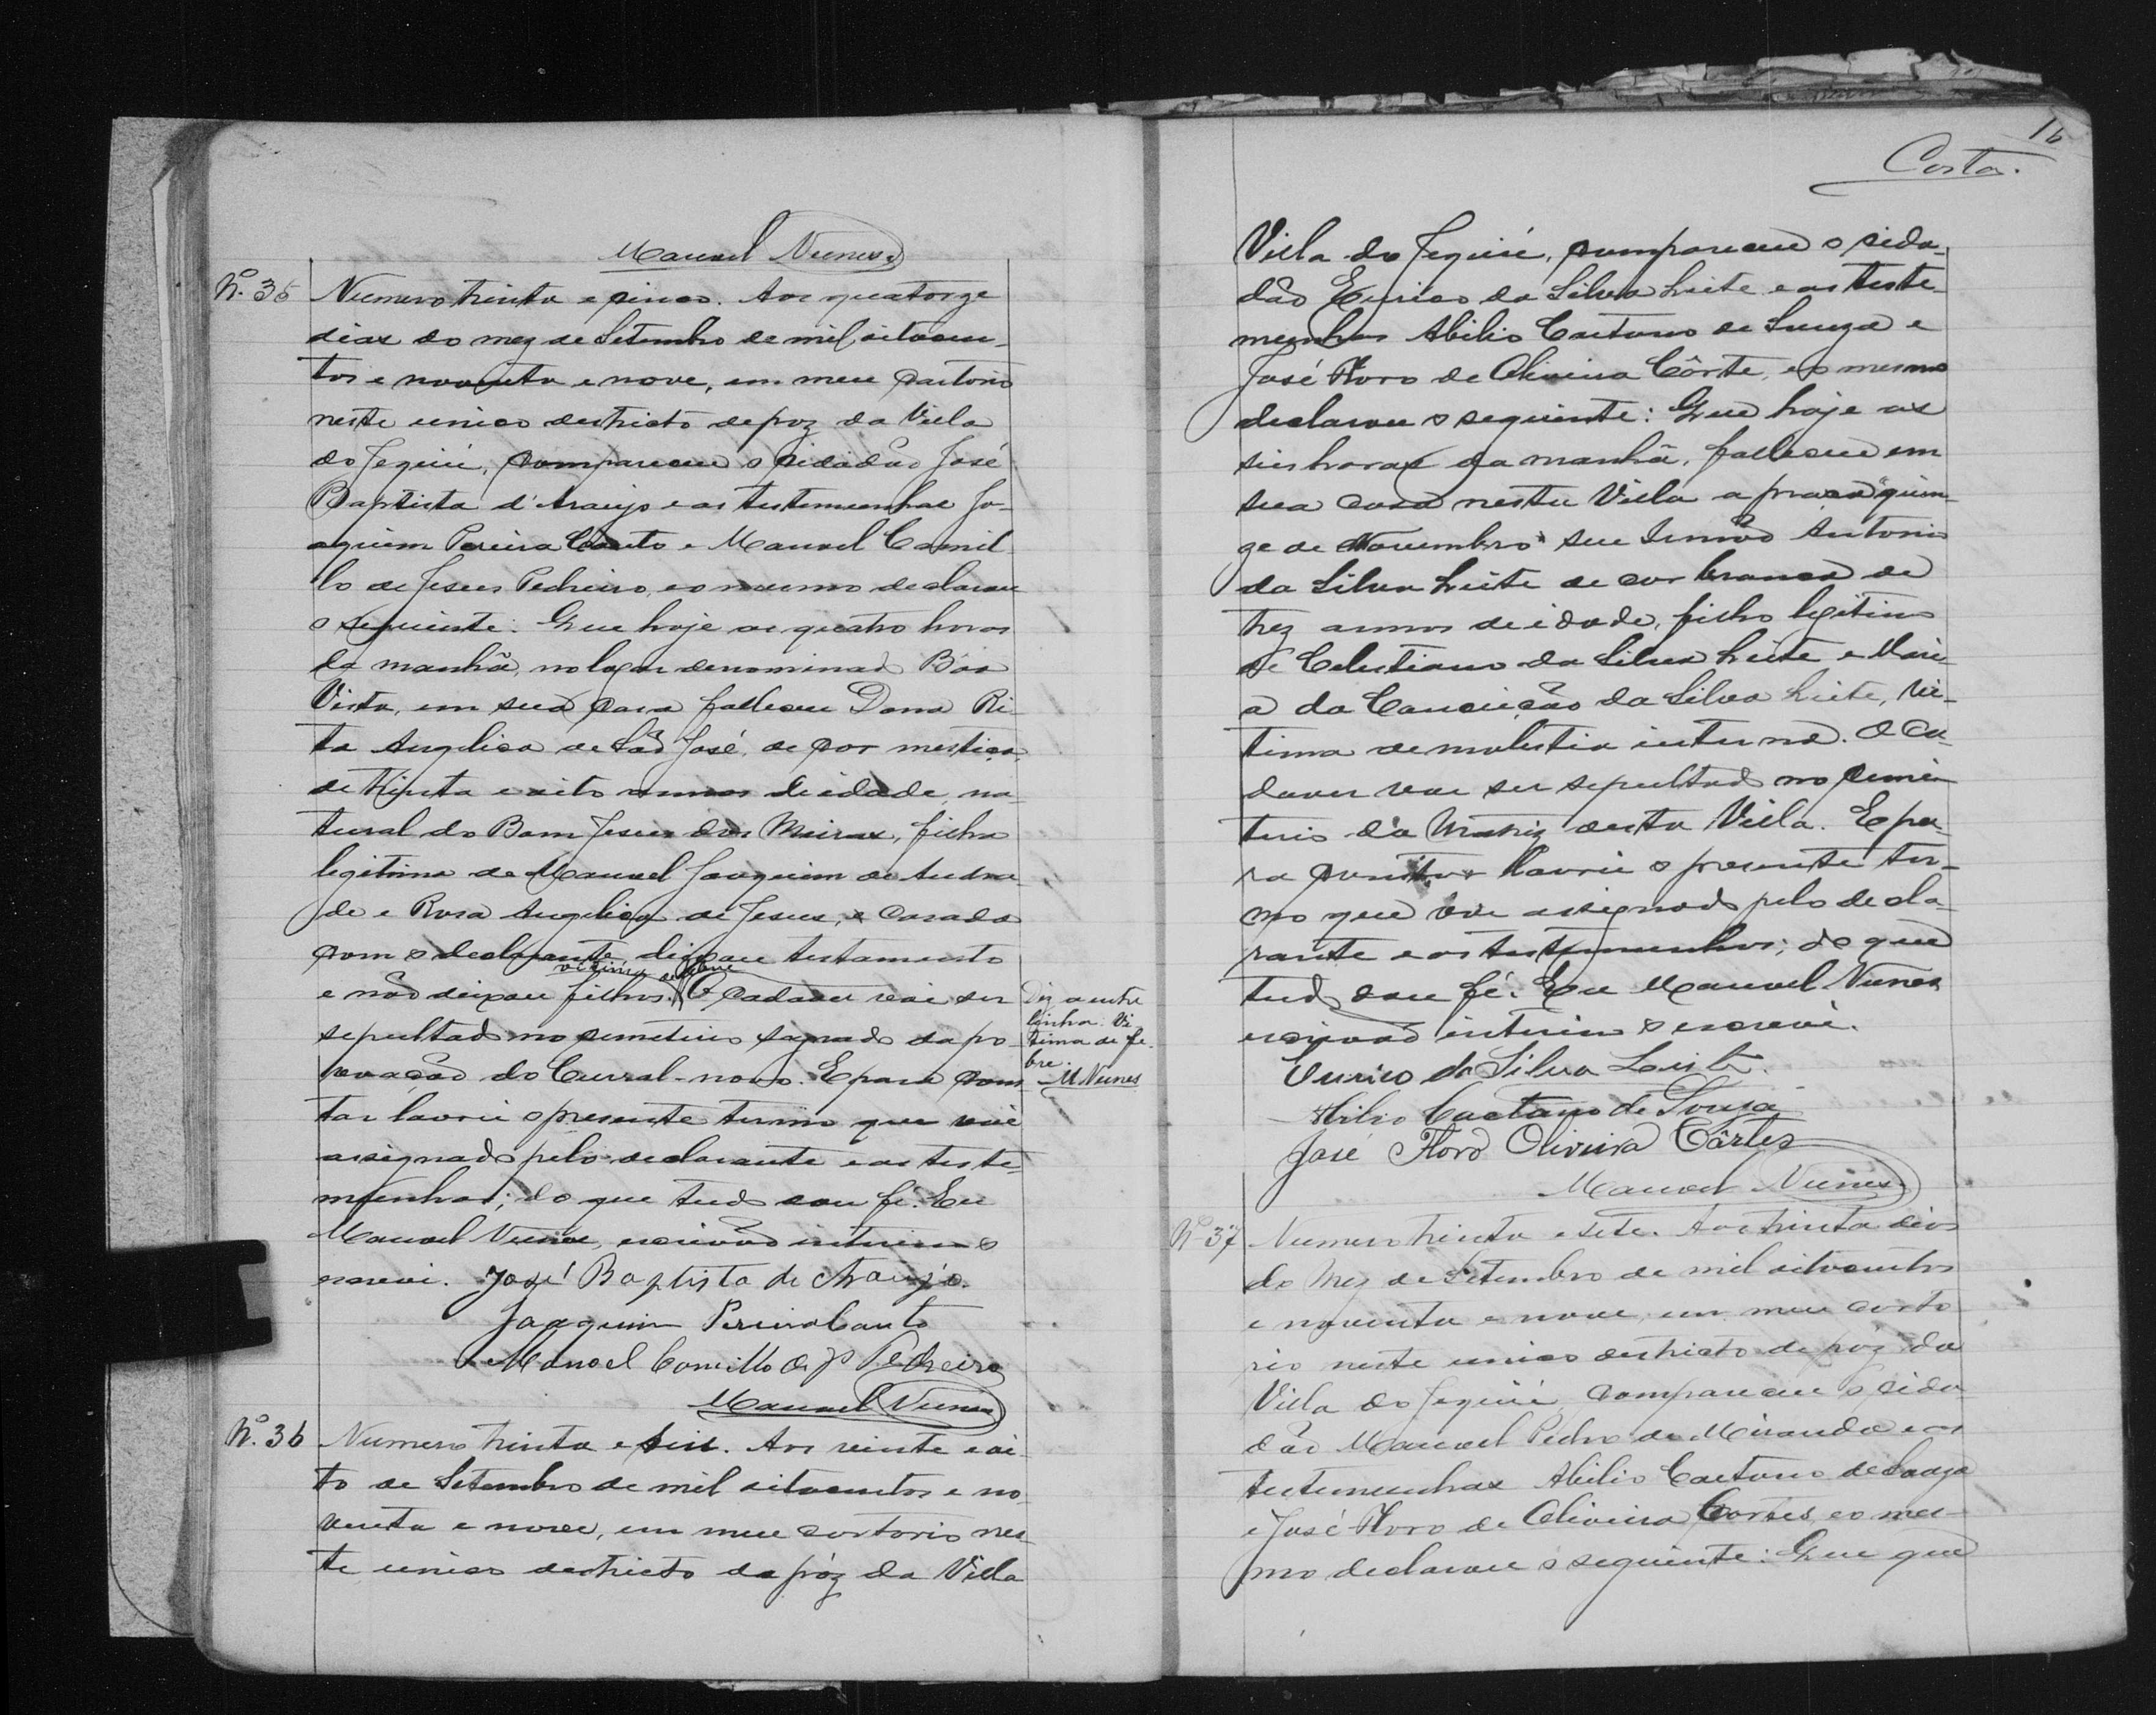 Manoel Nunes
Nº. 35 Numero trinta e cinco. Aos quatorze
dias do mez de Setembro de mil oitocen-
tos e noventa e nove, em meu cartorio
neste unico destricto de paz da Villa
do Jequié, compareceu o cidadão José
Baptista d'Araujo e as testemunhas Jo-
aquim Pereira Couto e Manoel Camil-
lo de Jesus Pedreiro, e o mesmo declarou
o seguinte: Que hoje as quatro horas
da manhã, no logar denominado Bôa
Vista, em sua casa falleceu Dona Ri-
ta Angelica de São José, de cor mestiça,
de trinta e oito annos de idade, na-
tural do Bom Jesus dos Meiras, filha
legitima de Manoel Joaquim de Andra-
de e Rosa Angelica de Jesus, e casada
com o declarante, deixou testamento
victima de febre
e não deixou filhos. O cadaver vai ser
sepultado no cemiterio sagrado da po-
voação do Curral-novo. E para cons-
tar lavrei o presente termo que vai
assignado pelo declarante e as teste-
munhas; do que tudo dou fé. Eu
Manoel Nunes, escrivão interino o
escrevi. José Baptista de Araujo.
Joaquim Pereira Couto
Manoel Camillo de J. Pedreiro
Manoel Nunes
Diz a entre
linha: Vi-
tima de fe-
bre.
M Nunes
Nº. 36 Numero trinta e seis. Aos vinte e oi-
to de Setembro de mil oitocentos e no-
venta e nove, em meu cartorio nes-
te unico destricto de páz da Villa
16
Costa.
Villa do Jequié, compareceu o cida-
dão Eurico da Silva Leite e as teste-
munhas Abilio Caetano de Souza e
José Floro de Oliveira Côrte, e o mesmo
declarou o seguinte: Que hoje as
seis horas da manhã, falleceu em
sua casa nesta Villa a praça "quin-
ze de Novembro" seu Irmão Antonio
da Silva Leite de cor branca de
trez annos de idade, filho legitimo
de Celestiano da Silva Leite e Mari-
a da Conceição da Silva Leite, Vic-
tima de molestia interna. O Ca-
daver vae ser sepultado no cemi-
terio da Matriz desta Villa. E pa-
ra constar lavrei o presente ter-
mo que vae assignado pelo decla-
rante e as testemunhas; do que
tudo dou fé. Eu Manoel Nunes
escrivão interino o escrevi.
Eurico da Silva Leite.
Abilio Caetano de Souza
José Floro Oliveira Côrtes
Manoel Nunes
Nº 37 Numero trinta e sete. Aos trinta dias
do Mez de Setembro de mil oitocentos
e noventa e nove, em meu carto-
rio neste unico destricto de páz da
Villa do Jequié, compareceu o cida-
dão Manoel Pedro de Miranda e as
testemunhas Abilio Caetano de Souza
e José Floro de Oliveira Cortes, e o mes-
mo declarou o seguinte: Que que